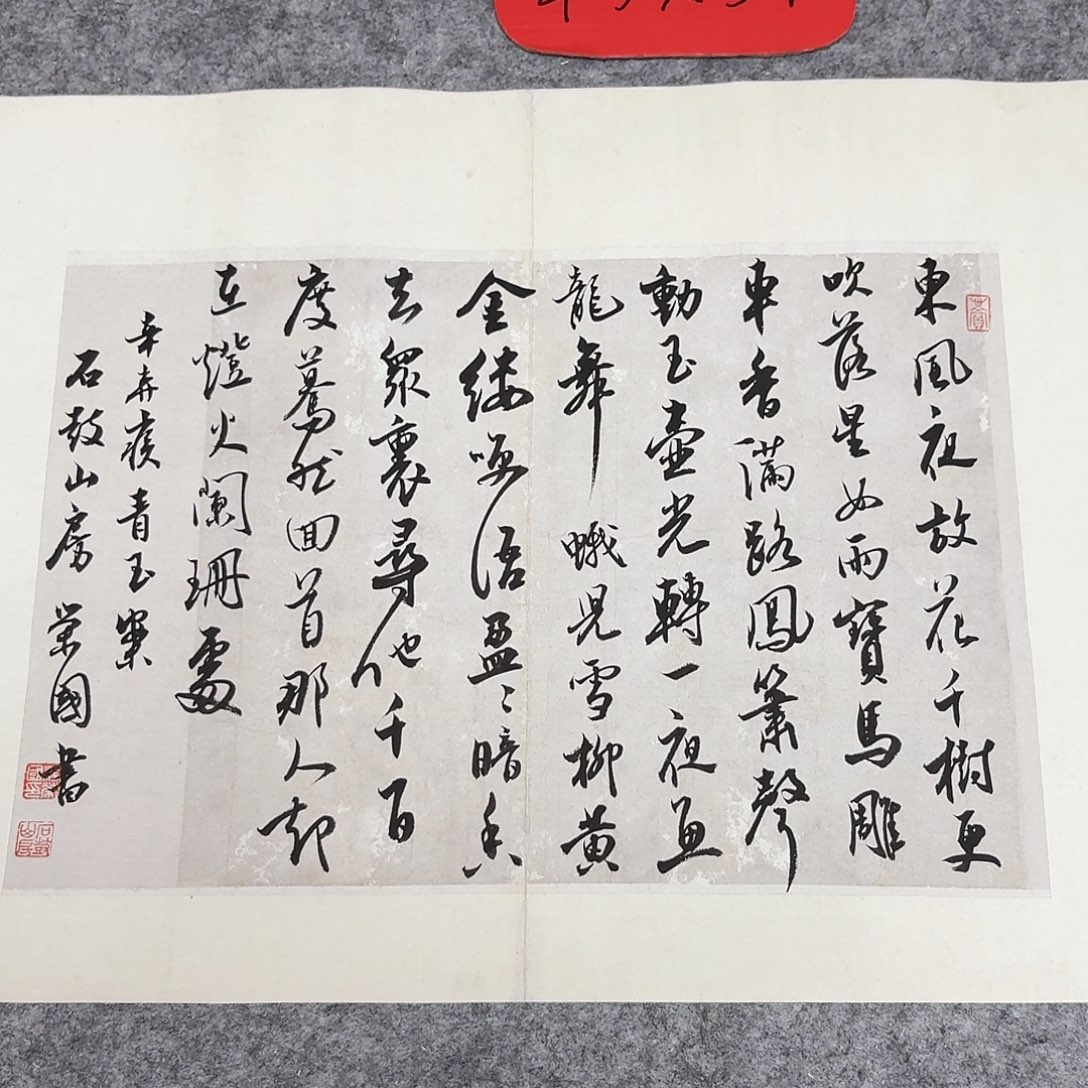 東風夜放花千樹更
吹落星如雨寶馬雕
車香滿路鳳簫聲
動玉壺光轉一夜魚
龍舞 蛾兒雪柳黃
金縷咲語盈〻暗香
去眾裏尋他千百
度驀然回首那人却
在燈火闌珊處
辛弃疾青玉案
石鼓山房 榮國書
石鼓山房